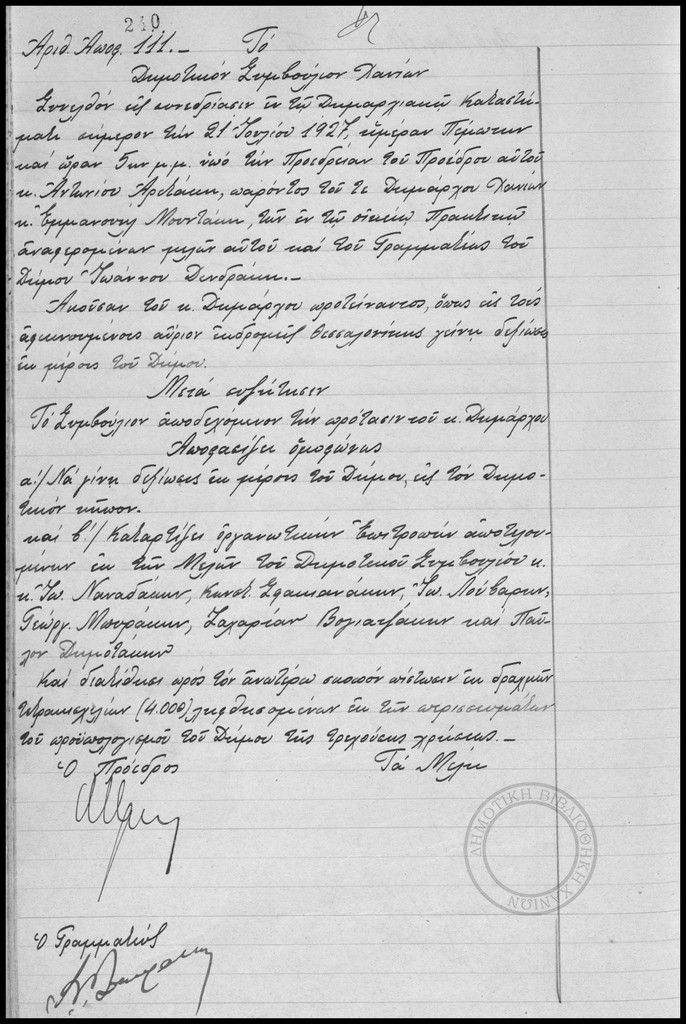 240
Ἀριθ. Ἀποφ. 111.— Τό
Δημοτικόν Συμβούλιον Χανίων
Συνελθόν εἰς συνεδρίασιν ἐν τῷ Δημαρχιακῷ Καταστή-
ματι σήμερον τήν 21 Ἰουλίου 1927, ἡμέραν Πέμπτην
καί ὥραν 5ην μ.μ. ὑπό τήν Προεδρείαν τοῦ Προέδρου αὐτοῦ
κ. Ἀντωνίου Αρετάκη, παρόντος τοῦ τε Δημάρχου Χανίων
κ. Ἐμμανουήλ Μουντάκη, τῶν ἐν τῷ οἰκείῳ Πρακτικῷ
ἀναφερομένων μελῶν αὐτοῦ καί τοῦ Γραμματέως τοῦ
Δήμου Ἰωάννου Δενδράκη.—
Ἀκοῦσαν τοῦ κ. Δημάρχου προτείναντος, ὅπως εἰς τούς
ἀφικνουμένους αὔριον ἐκδρομεῖς Θεσσαλονίκης γείνῃ δεξίωσις
ἐκ μέρους τοῦ Δήμου.
Μετά συζήτησιν
Τό Συμβούλιον ἀποδεχόμενον τήν πρότασιν τοῦ κ. Δημάρχου
Ἀποφασίζει ὁμοφώνως
α!/ Νά γίνῃ δεξίωσις ἐκ μέρους τοῦ Δήμου, εἰς τόν Δημο-
τικόν κῆπον.
καί β!/ Καταρτίζει ὀργανωτικήν Ἐπιτροπήν ἀποτελου-
μένην ἐκ τῶν Μελῶν τοῦ Δημοτικοῦ Συμβουλίου κ.
κ. Ἰω. Ναναδάκην, Κωνστ. Σφακιανάκην, Ἰω. Λούβαρην,
Γεώργ. Μπυράκην, Ζαχαρίαν Βογιατζάκην καί Παῦ-
λον Δημοτάκην
Καί διατίθησι πρός τόν ἀνωτέρω σκοπόν πίστωσιν ἐκ δραχμῶν
τετρακισχιλίων (4.000) ληφθησομένων ἐκ τῶν περισσευμάτων
τοῦ προϋπολογισμοῦ τοῦ Δήμου τῆς τρεχούσης χρήσεως.—
Ὁ Πρόεδρος Τά Μέλη
Ὁ Γραμματεύς
ΔΗΜΟΤΙΚΗ ΒΙΒΛΙΟΘΗΚΗ ΧΑΝΙΩΝ